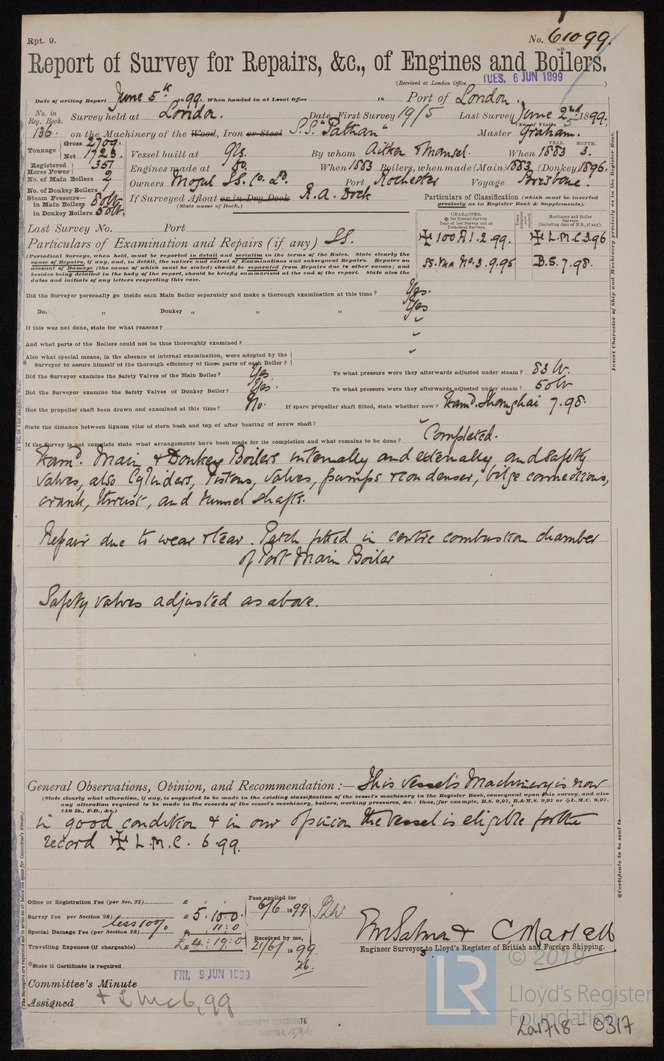 Rpt. 9.
No. 61099.
Report of Survey for Repairs, &c., of Engines and Boilers.
(Received at London Office TUES. 6 JUN 1899
Date of writing Report June 5th 1899. When handed in at Local Office 18 Port of London.
No. in Reg. Book. Survey held at London. Date, First Survey 19/5 Last Survey June 2nd 1899.
136. on the Machinery of the Wood, Iron or Steel S.S. "Pathan" Master Graham.
Tonnage Gross 2709. Net 1723.
Vessel built at Gls. By whom Aitken & Mansel. When 1883 3.
Registered Horse Power 351
Engines made at Do. When 1883 Boilers, when made (Main) 1883 (Donkey) 1896.
No. of Main Boilers 2
No. of Donkey Boilers 1
Owners Mogul SS. Co. Ld. Port Rochester Voyage Brisbane.
Steam Pressure— in Main Boilers 80 lb.
in Donkey Boilers 50 lb.
If Surveyed Afloat or in Dry Dock R.A. Dock
(State name of Dock.)
Particulars of Classification (which must be inserted precisely as in Register Book & Supplements).
Last Survey No. Port
✠ 100 A1. 2.99. ✠ L.M.C. 3.96
Particulars of Examination and Repairs (if any) SS.
SS. No. 3. 9.95 B.S. 7.98.
(Periodical Surveys, when held, must be reported in detail and seriatim in the terms of the Rules. State clearly the cause of Repairs, if any, and, in detail, the nature and extent of Examinations and subsequent Repairs. Repairs on account of Damage (the cause of which must be stated) should be separated from Repairs due to other causes; and besides being detailed in the body of the report, should be briefly summarised at the end of the report. State also the dates and initials of any letters respecting this case.
Did the Surveyor personally go inside each Main Boiler separately and make a thorough examination at this time? Yes.
Do. „ Donkey „ „ „ Yes
If this was not done, state for what reasons?
And what parts of the Boilers could not be thus thoroughly examined?
Also what special means, in the absence of internal examination, were adopted by the Surveyor to assure himself of the thorough efficiency of those parts of each Boiler?
Did the Surveyor examine the Safety Valves of the Main Boiler? Yes. To what pressure were they afterwards adjusted under steam? 83 lb.
Did the Surveyor examine the Safety Valves of Donkey Boiler? Yes. To what pressure were they afterwards adjusted under steam? 50 lb
Has the propeller shaft been drawn and examined at this time? No. If spare propeller shaft fitted, state whether new? Examd. Shanghai 7.98.
State the distance between lignum vitæ of stern bush and top of after bearing of screw shaft?
If the Survey is not complete state what arrangements have been made for its completion and what remains to be done? Completed.
Examd. Main & Donkey Boilers internally and externally and safety
valves, also Cylinders, Pistons, valves, pumps & condenser, bilge connections,
crank, thrust, and tunnel shafts.
Repair due to wear & tear. Patch fitted in centre combustion chamber
of Port Main Boiler
Safety valves adjusted as above.
General Observations, Opinion, and Recommendation:— This Vessel's Machinery is now
(State clearly what alteration, if any, is suggested to be made in the existing classification of the vessel's machinery in the Register Book, consequent upon this survey, and also any alteration required to be made in the records of the vessel's machinery, boilers, working pressures, &c.: thus, for example, B.S. 9,97, B.&M.S. 9,97 or ✠L.M.C. 9,97, 140 lb., F.D., &c.)
in good condition & in our opinion the Vessel is eligible for the
record ✠ L.M.C. 6.99.
Office or Registration Fee (per Sec. 27) £
Survey Fee per Section 28) £ 5.10.0
less 10% 11:0
Special Damage Fee (per Section 28) £ 4:19:0
Travelling Expenses (if chargeable) £
Fees applied for 6/6 1899
Received by me, 21/6/1899
Engineer Surveyor to Lloyd's Register of British and Foreign Shipping.
State if Certificate is required 26.
FRI. 9 JUN 1899
Committee's Minute
Assigned + LMC 6,99
© 2019
LR
Lloyd's Register
Foundation
La1718-0317